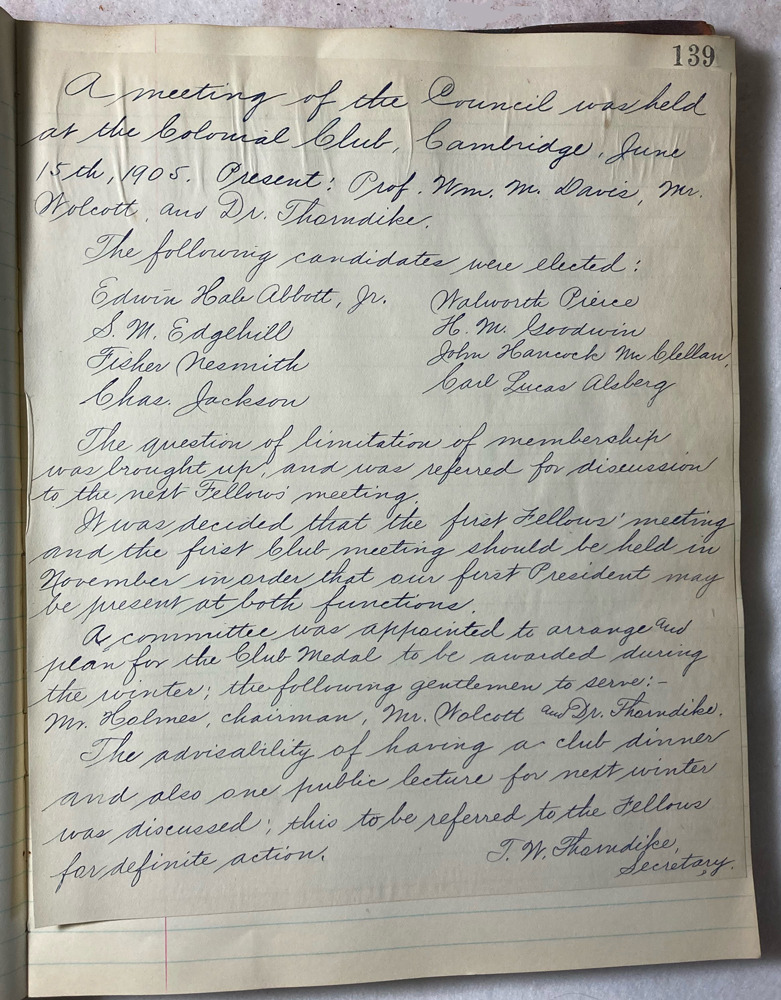 139
A meeting of the Council was held
at the Colonial Club, Cambridge, June
15th, 1905. Present: Prof. Wm. M. Davis, Mr.
Wolcott, and Dr. Thorndike.
The following candidates were elected:
Edwin Hale Abbott, Jr. Walworth Pierce
S. M. Edgehill H. M. Goodwin
Fisher Nesmith John Hancock McClellan,
Chas. Jackson Carl Lucas Alsberg
The question of limitation of membership
was brought up, and was referred for discussion
to the next Fellows' meeting.
It was decided that the first Fellows' meeting
and the first Club meeting should be held in
November in order that our first President may
be present at both functions.
A committee was appointed to arrange and
plan for the Club Medal to be awarded during
the winter; the following gentlemen to serve:-
Mr. Holmes, chairman, Mr. Wolcott and Dr. Thorndike.
The advisability of having a club dinner
and also one public lecture for next winter
was discussed; this to be referred to the Fellows
for definite action.
T. W. Thorndike,
Secretary.